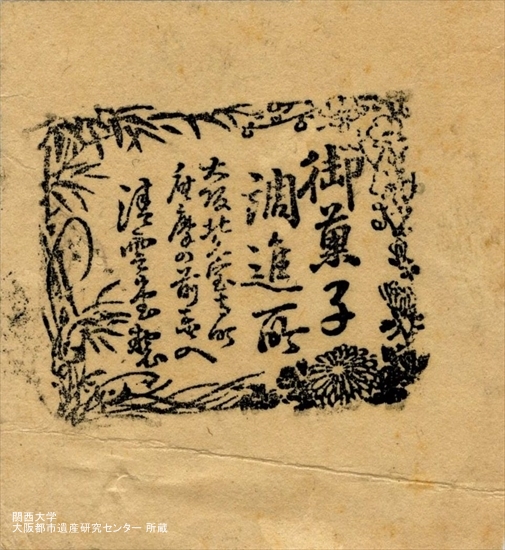 御菓子
調進所
大阪北久宝寺町
座摩の前東へ入
清雲堂製
関西大学
大阪都市遺産研究センター 所蔵